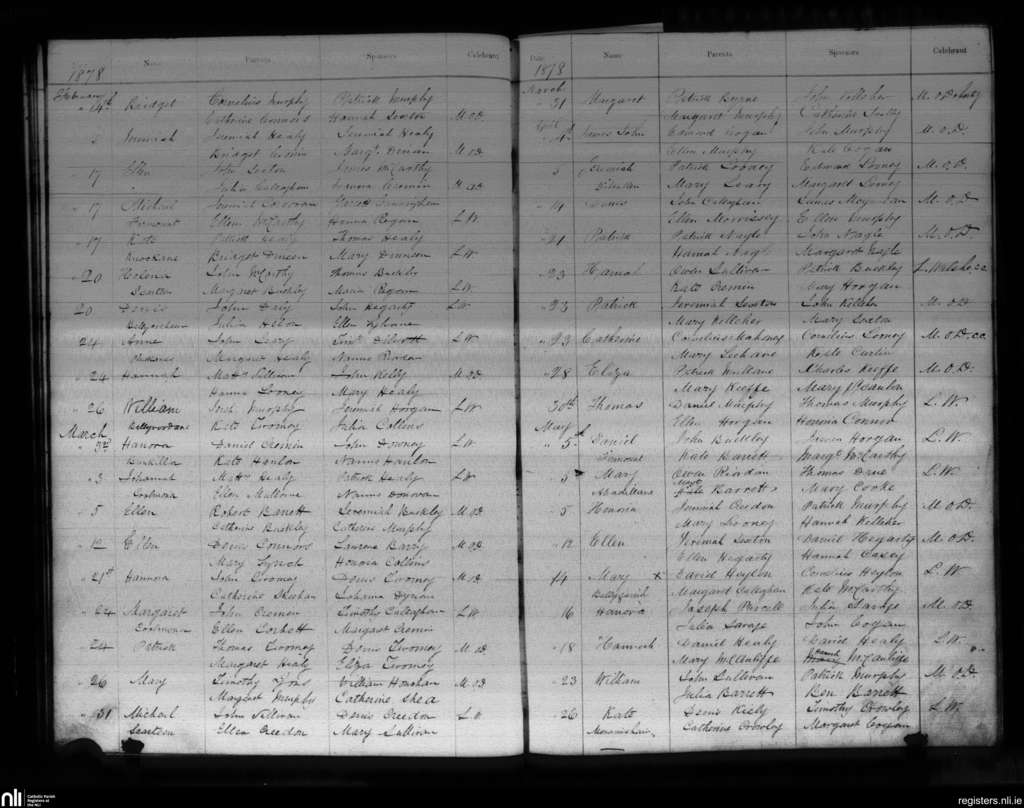 1878 Name Parents Sponsors Celebrant
February
" 14th Bridget Cornelius Murphy Patrick Murphy
Catherine Connors Hannah Sexton M. OD
Jeremiah Healy Jeremiah Healy
Bridget Cronin Margt. M. OD
" 17 Ellen John Sexton James McCarthy
Julia Callaghan Cronin M. OD
" 17 Michael Corcoran
Ellen McCarthy Regan L.W.
" 17 Kate Patrick Healy Thomas Healy
Knockane Bridget Duneen Mary Duneen L.W.
" 20 Helena John McCarthy Thomas Buckley
Margaret Buckley Maria Regan L.W.
20 Denis John Daly John Hegarty L.W.
Julia Ellen
24 Anne John Leary L.W.
Margaret Healy Nanno Riordan
" 24 Hannah Matts. Sullivan John Kelly M. OD
Hanna Looney Mary Healy
" 26 William Murphy Jeremiah Horgan L.W.
Kate Twomey Julia Collins
March
" 3rd Hanora Daniel Cronin John Downey L.W.
Kate Hanlon Nanno Hanlon
" 3 Johannah Matts. Healy Patrick Healy L.W.
Ellen Mullane Nanno Donovan
" 5 Ellen Robert Barrett Jeremiah Buckley M. OD
Catherine Buckley Catherine Murphy
" 12 Ellen Denis Connors Laurence Barry M. OD
Mary Lynch Honora Collins
" 21st Hannora John Twomey Denis Twomey M. OD
Catherine Sheehan Johanna
" 24 Margaret John Cremen Timothy Callaghan L.W.
Ellen Corkett Margaret Cremin
" 24 Patrick Thomas Twomey Denis Twomey M. OD
Margaret Healy Eliza Twomey
" 26 Mary Timothy Lyons William Hourihan M. OD
Margaret Murphy Catherine Shea
" 31 Michael John Sullivan Denis Creedon L.W.
Scarteen Ellen Creedon Mary Sullivan
Date 1878 Name Parents Sponsors Celebrant
March
" 31 Margaret Patrick Byrne John Kelleher M. O'Doherty
Margaret Murphy Catherine
April
" 4th James John Edmond Cogan John Murphy M. O.D.
Ellen Murphy Kate Cogan
" 5 Jeremiah Patrick Looney Edmond Looney M. O.D.
Mary Leary Margaret Looney
" 14 Denis John Callaghan James Moynihan M. O.D.
Ellen Morrissey Ellen Murphy
" 21 Patrick Patrick Nagle John Nagle M. O.D.
Hannah Nagle Margaret Nagle
" 23 Hannah Owen Sullivan Patrick Buckley L. Welsh, CC
Kate Cremin Mary Horgan
" 23 Patrick Jeremiah Sexton John Kelleher M. O.D.
Mary Kelleher Mary Sexton
" 23 Catherine Cornelius Mahoney Cornelius Looney M. O.D. CC
Mary Leehane Kate Curtin
" 28 Eliza Patrick Mullane Charles Keeffe M. O.D.
Mary Keeffe Mary
30th Thomas Daniel Murphy Thomas Murphy L.W.
Ellen Horgan Honora Connor
May
" 5th Daniel John Buckley Horgan L.W.
Kate Barrett Margt. McCarthy
" 5 Mary Owen Riordan Thomas Dane L.W.
Barrett Mary Cooke
" 5 Honora Jeremiah Creedon Patrick Murphy M. O.D.
Mary Looney Hannah Kelleher
" 12 Ellen Jeremiah Sexton Daniel Hegarty M. O.D.
Ellen Hegarty Hannah Casey
" 14 Mary x David Heylon Cornelius Heylon L.W.
Margaret Callaghan Kate McCarthy
" 16 Hanora Joseph Purcell Julia Savage M. O.D.
Julia Savage John Cogan
" 18 Hannah Daniel Healy Daniel Healy L.W.
Mary McAuliffe Hannah McAuliffe
" 23 William John Sullivan Patrick Murphy M. O.D.
Julia Barrett Ben Barrett
" 26 Kate Denis Kiely Timothy Crowley L.W.
Catherine Crowley Margaret Cogan
nli Catholic Parish Registers at the NLI
registers.nli.ie